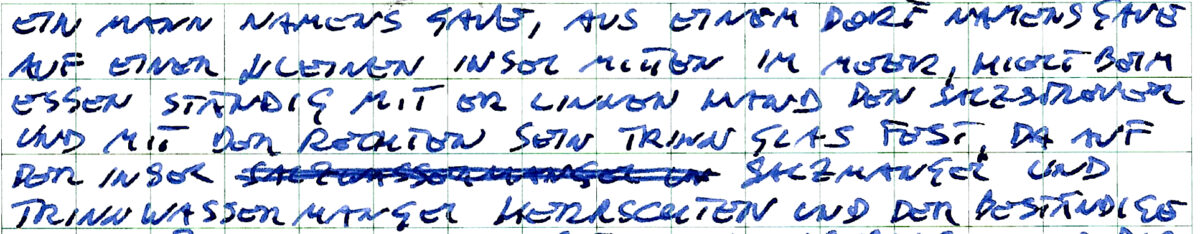 EIN MANN NAMENS GAVE, AUS EINEM DORF NAMENS GAVE
AUF EINER KLEINEN INSEL MITTEN IM MEER, HIELT BEIM
ESSEN STÄNDIG MIT ER LINKEN HAND DEN SALZSTREUER
UND MIT DER RECHTEN SEIN TRINKGLAS FEST, DA AUF
DER INSEL SALZWASSERMANGEL UN SALZMANGEL UND
TRINKWASSERMANGEL HERRSCHTEN UND DER BESTÄNDIGE